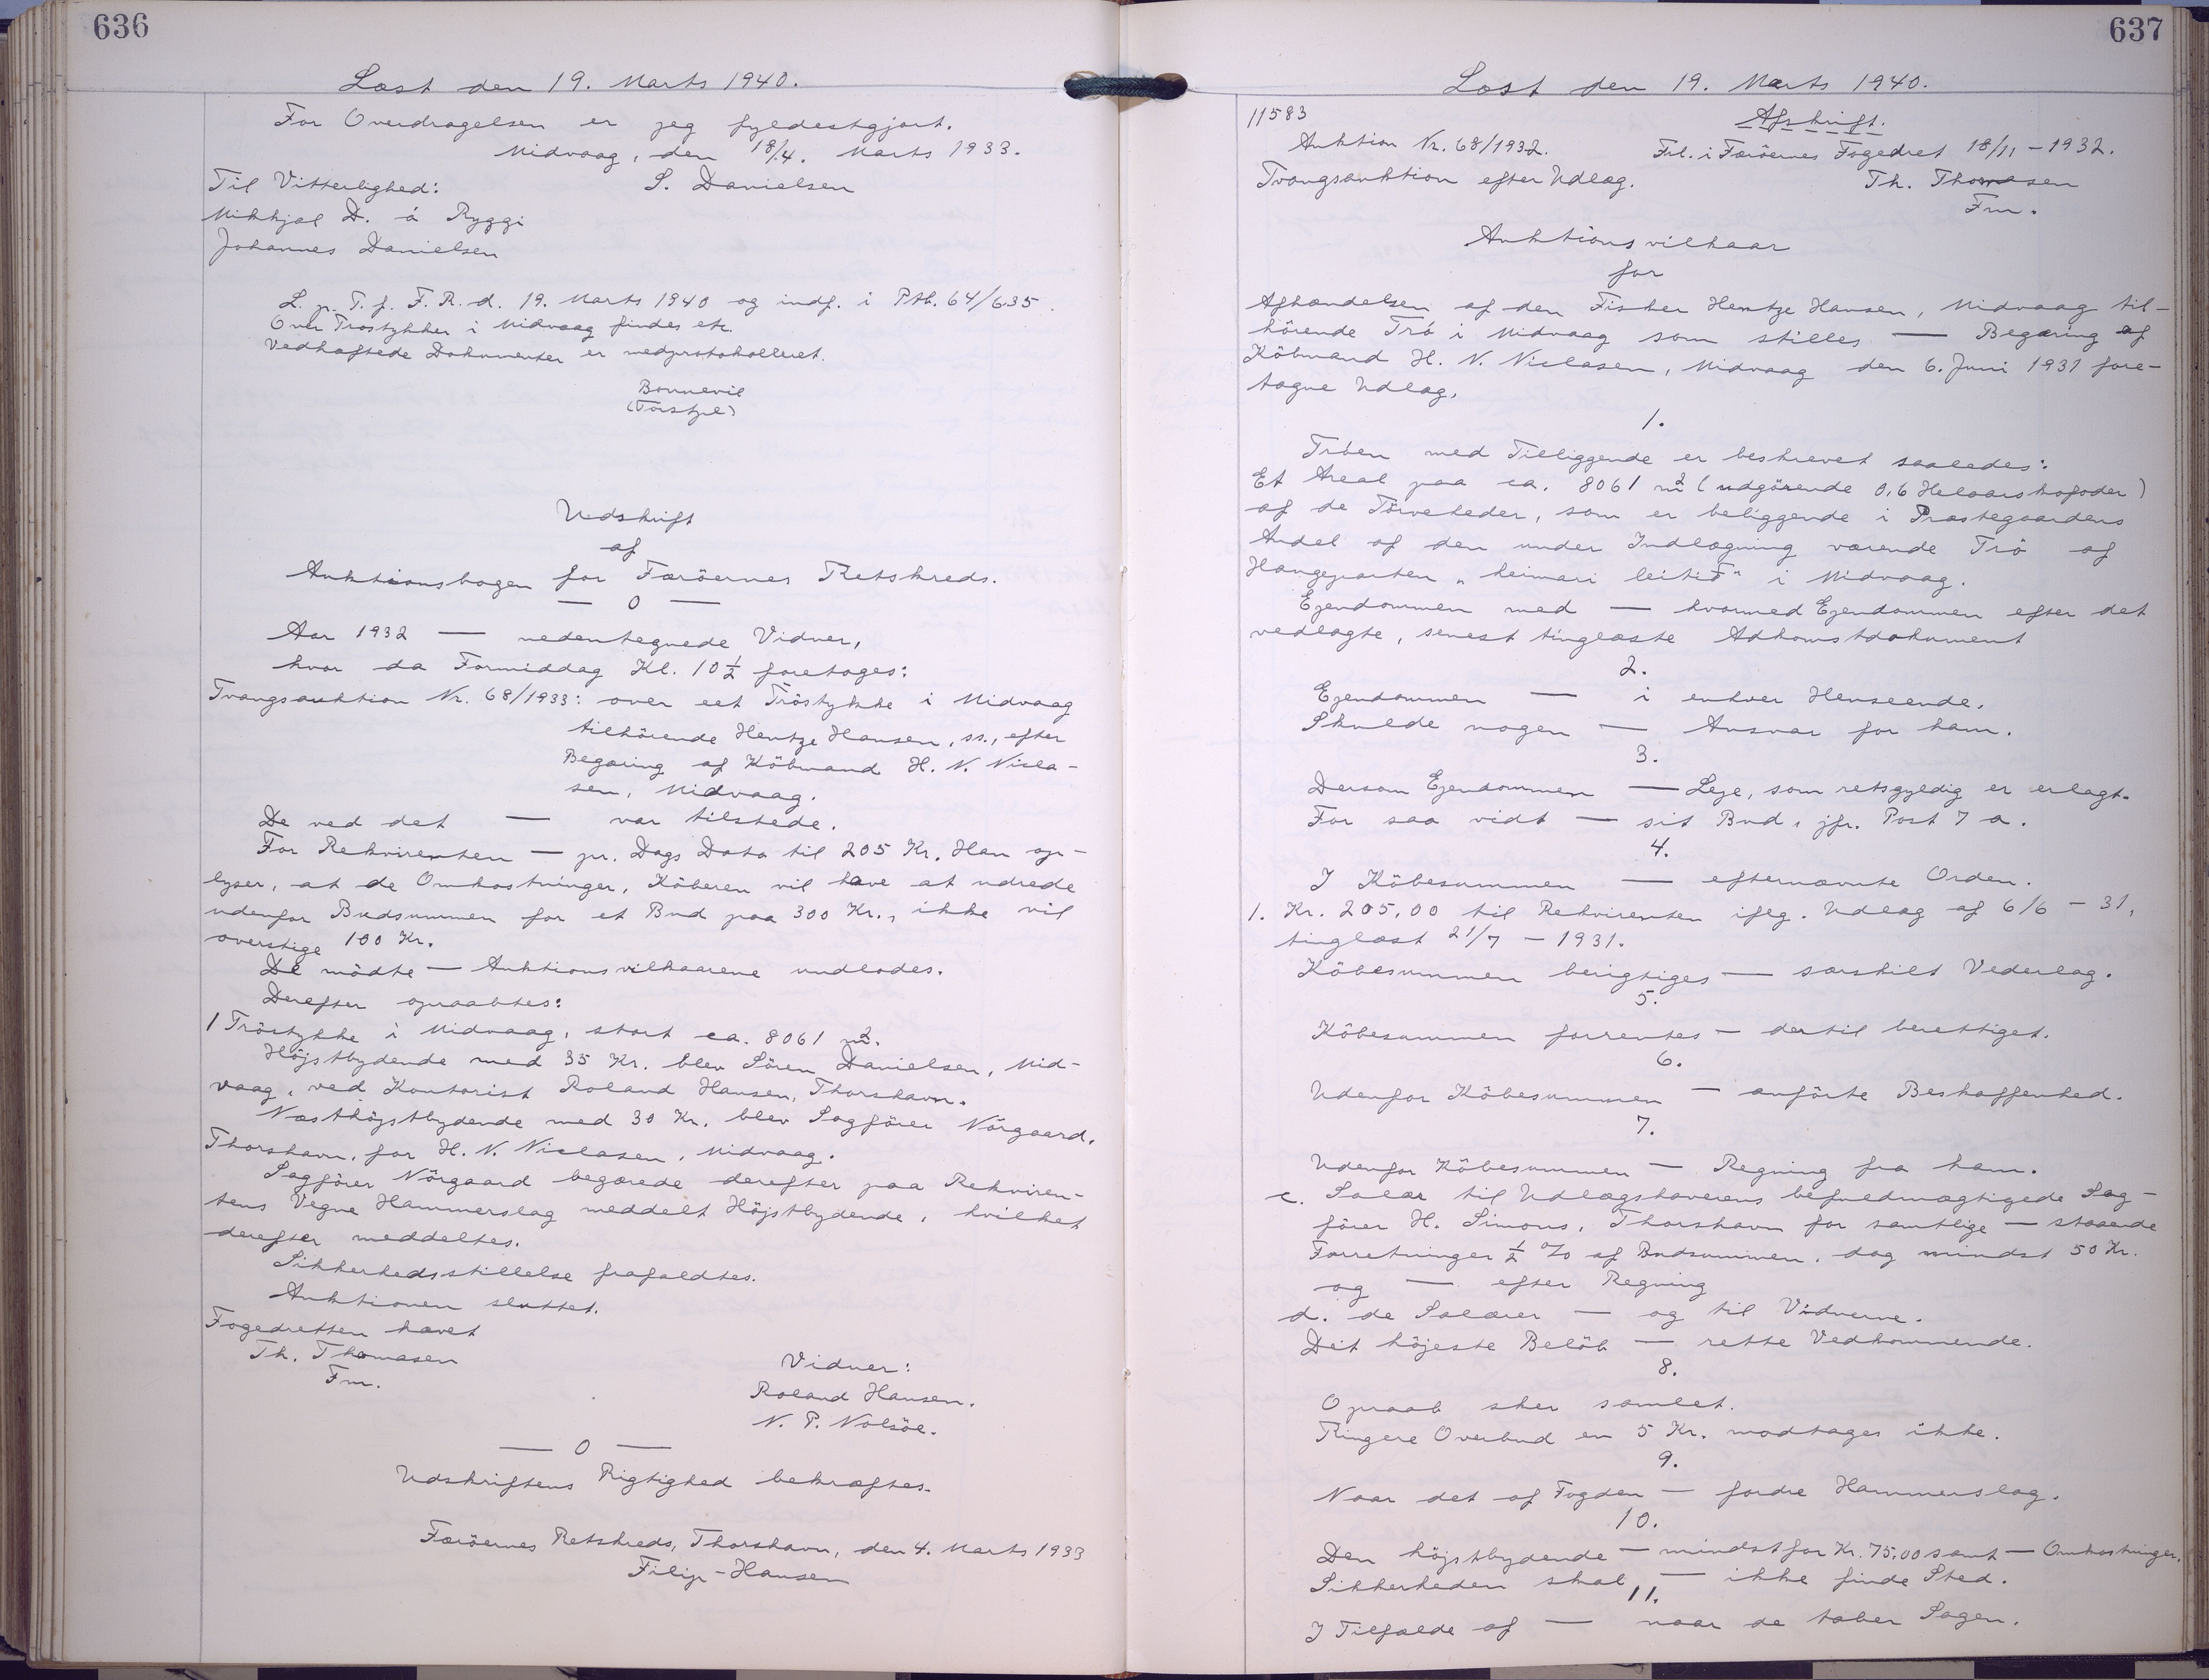 636
Læst den 19. Marts 1940.
For Overdragelsen er jeg fyldestgjort.
Midvaag, den 18/4. Marts 1933.
Til Vitterlighed: S. Danielsen
Mikkjal D. á Ryggi
Johannes Danielsen
L. p. T. f. F. R. d. 19. Marts 1940 og indf. i Ptk. 64/635.
Over Tröstykker i Midvaag findes etc.
Vedhæftede Dokumenter er medprotokolleret.
Bonnevil
(Torstzl)
Udskrift
af
Auktionsbogen for Færöernes Retskreds.
— 0 —
Aar 1932 — nedentegnede Vidner,
hvor da Formiddag Kl. 10 1/2 foretoges:
Tvangsauktion Nr. 68/1933: over eet Tröstykke i Midvaag
tilhörende Hentze Hansen, ss., efter
Begæring af Köbmand H. N. Nicla-
sen, Midvaag.
De ved det — var tilstede.
For Rekvirenten — pr. Dags Dato til 205 Kr. Han op-
lyser, at de Omkostninger, Köberen vil have at udrede
udenfor Budsummen for et Bud paa 300 Kr., ikke vil
overstige 100 Kr.
De mödte — Auktionsvilkaarene undlodes.
Derefter opraabtes:
1 Tröstykke i Midvaag, stort ca. 8061 m².
Höjstbydende med 35 Kr. blev Sören Danielsen, Mid-
vaag, ved Kontorist Roland Hansen, Thorshavn.
Næsthöjstbydende med 30 Kr. blev Sagförer Nörgaard,
Thorshavn, for H. N. Niclasen, Midvaag.
Sagförer Nörgaard begærede derefter paa Rekviren-
tens Vegne Hammerslag meddelt Höjstbydende, hvilket
derefter meddeltes.
Sikkerhedsstillelse frafaldtes.
Auktionen sluttet.
Fogedretten hævet
Th. Thomasen
Fm.
Vidner:
Roland Hansen.
N. P. Nolsöe.
— 0 —
Udskriftens Rigtighed bekræftes.
Færöernes Retskreds, Thorshavn, den 4. Marts 1933
Filip-Hansen
637
Læst den 19. Marts 1940.
11583 Afskrift.
Auktion Nr. 68/1932. Frl. i Færöernes Fogedret 18/11 - 1932.
Tvangsauktion efter Udlæg. Th. Thomasen
Fm.
Auktionsvilkaar
for
Afhændelsen af den Fisker Hentze Hansen, Midvaag til-
hörende Trö i Midvaag som stilles — Begæring af
Köbmand H. N. Niclasen, Midvaag den 6. Juni 1931 fore-
tagne Udlæg.
1.
Tröen med Tilliggende er beskrevet saaledes:
Et Areal paa ca. 8061 m² (udgörende 0,6 Helaarskofoder)
af de Törveteder, som er beliggende i Præstegaardens
Andel af den under Indlægning værende Trö af
Haugeparten „heimari leitið“ i Midvaag.
Ejendommen med — hvormed Ejendommen efter det
vedlagte, senest tinglæste Adkomstdokument
2.
Ejendommen — i enhver Henseende.
Skulde nogen — Ansvar for ham.
3.
Dersom Ejendommen — Leje, som retsgyldig er erlagt.
For saa vidt — sit Bud, jfr. Post 7 a.
4.
I Köbesummen — efternævnte Orden.
1. Kr. 205,00 til Rekvirenten iflg. Udlæg af 6/6 - 31,
tinglæst 21/7 - 1931.
Köbesummen berigtiges — særskilt Vederlag.
5.
Köbesummen forrentes — dertil berettiget.
6.
Udenfor Köbesummen — anförte Beskaffenhed.
7.
Udenfor Köbesummen — Regning fra ham.
c. Salær til Udlægshaverens befuldmægtigede Sag-
förer H. Simons, Thorshavn for samtlige — staaende
Forretninger 1/2 % af Budsummen, dog mindst 50 Kr.
og — efter Regning
d. de Salærer — og til Vidnerne.
Det höjeste Belöb — rette Vedkommende.
8.
Opraab sker samlet.
Ringere Overbud en 5 Kr. modtages ikke.
9.
Naar det af Fogden — fordre Hammerslag.
10.
Den höjstbydende — mindst for Kr. 75,00 samt — Omkostninger.
Sikkerheden skal — ikke finde Sted.
11.
I Tilfælde af — naar de taber Sagen.